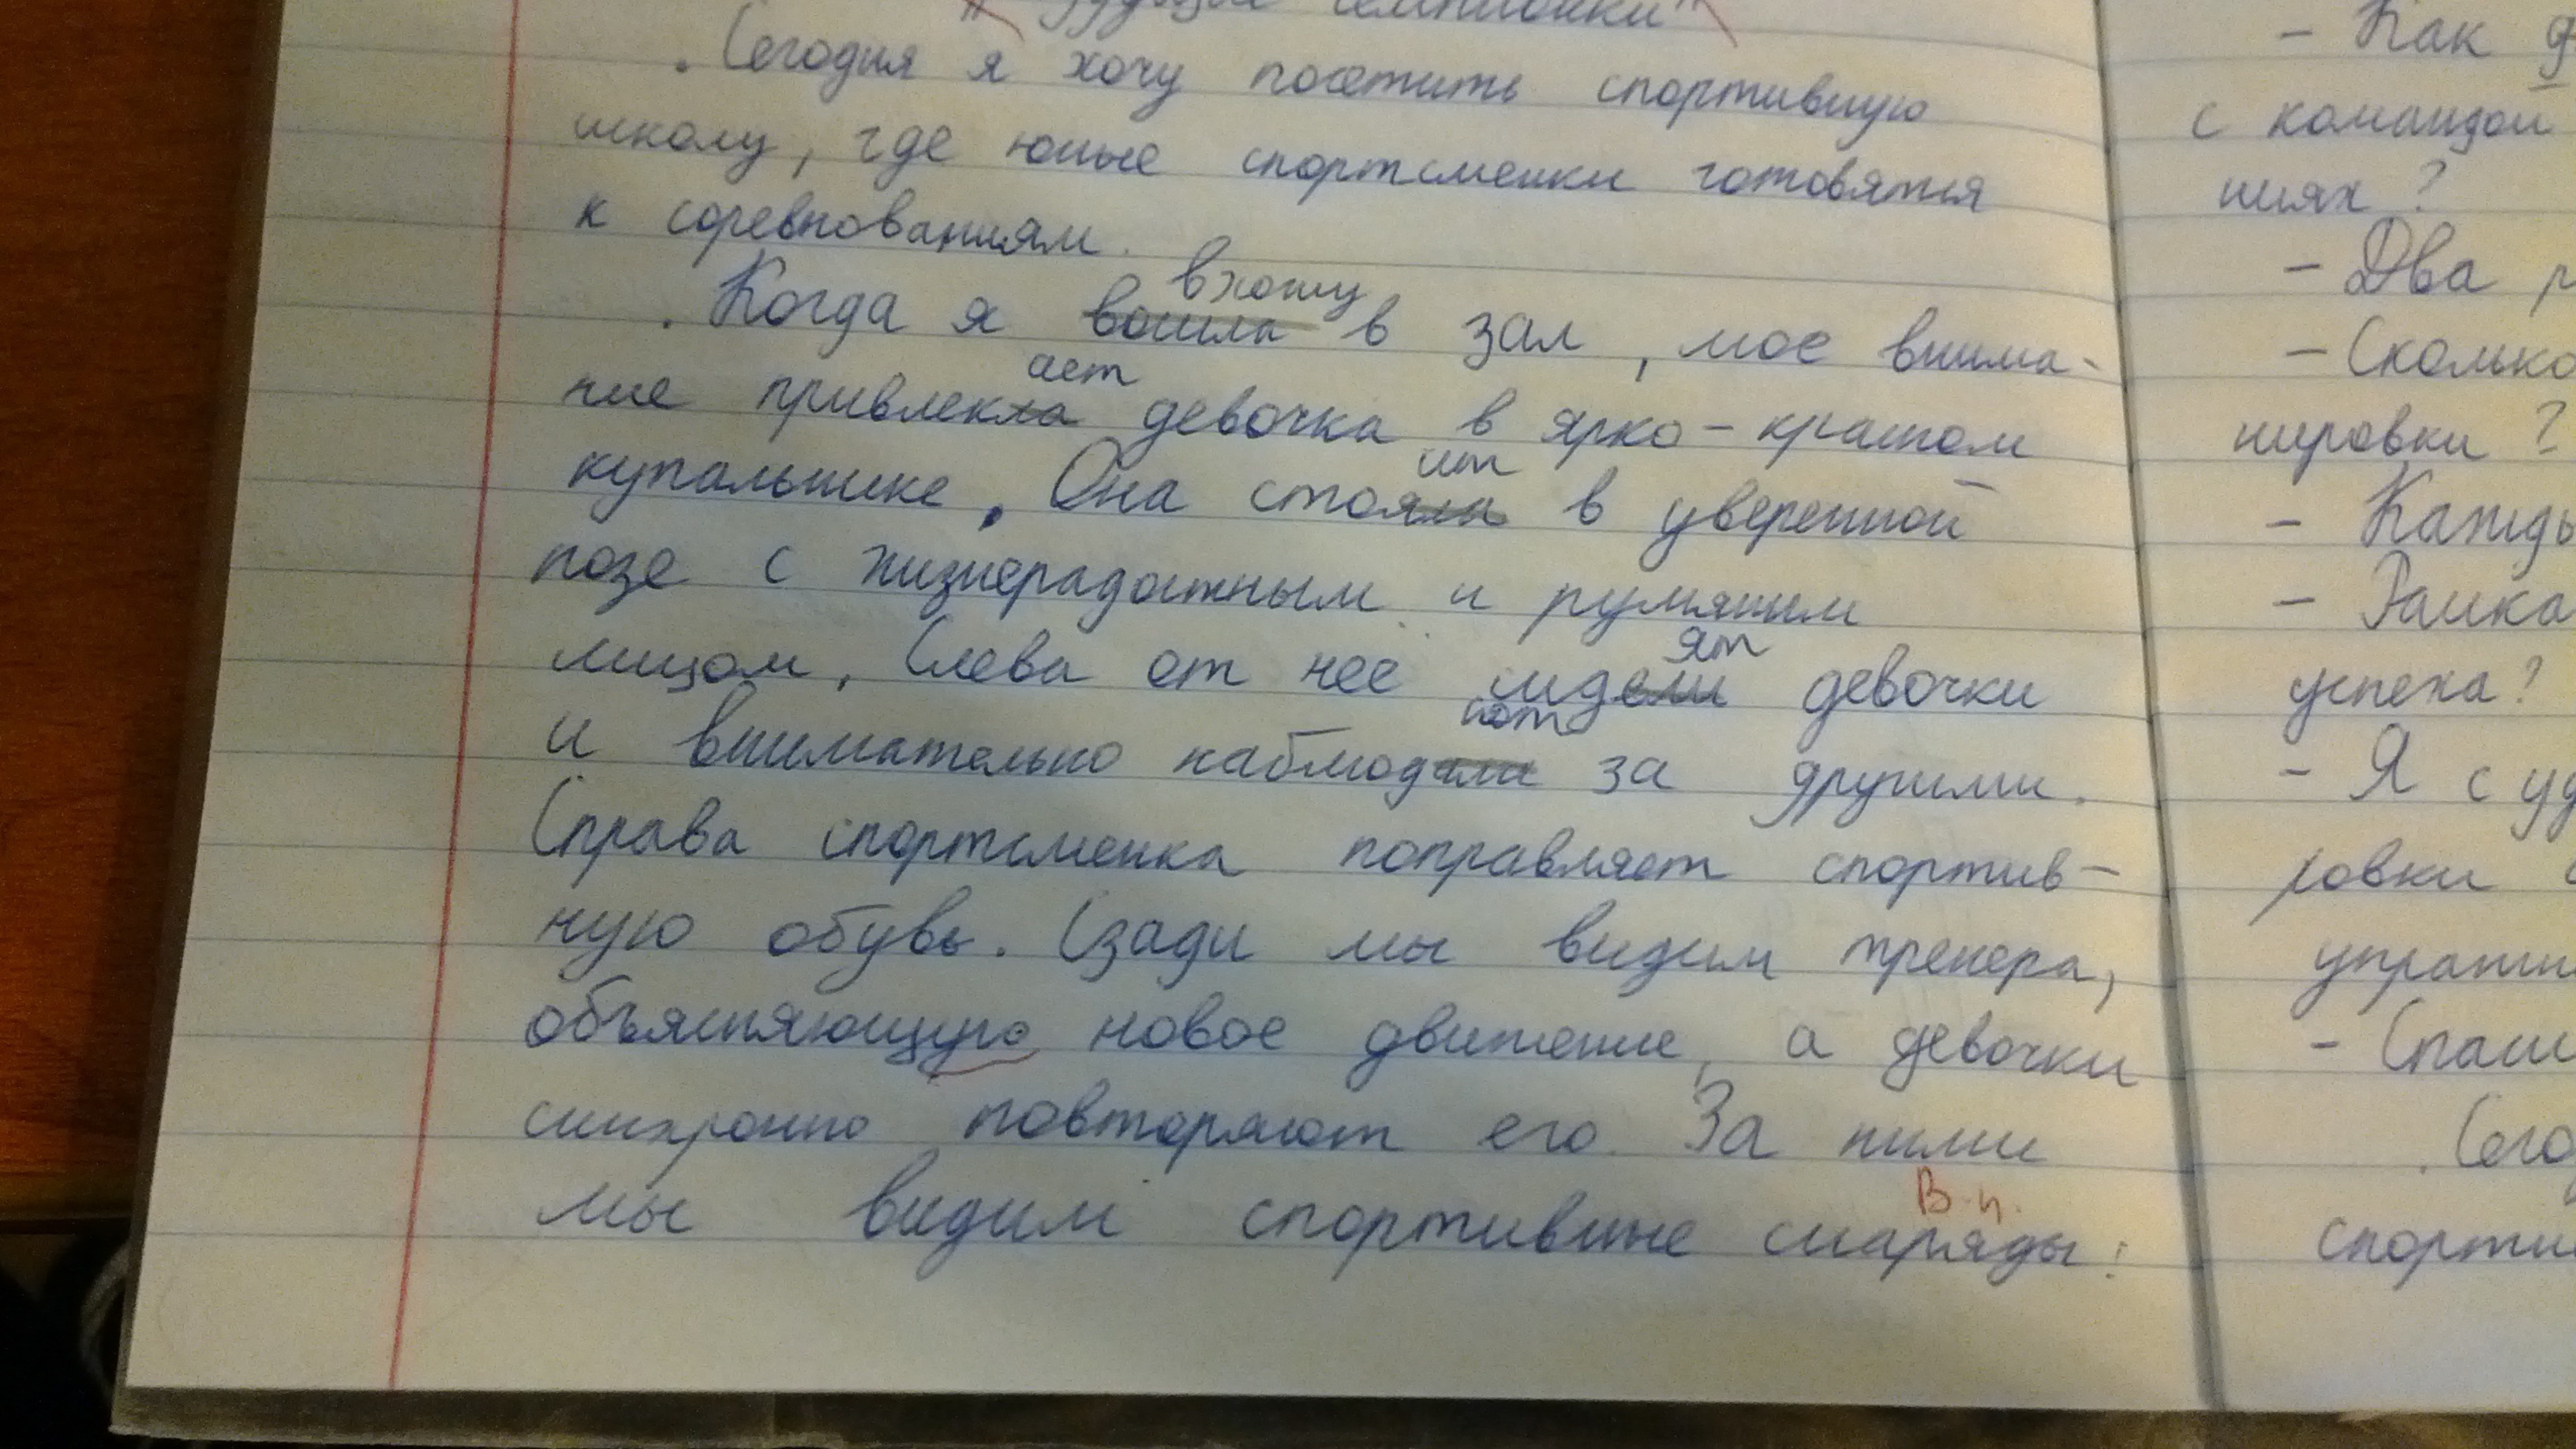 "Будущие чемпионки"
Сегодня я хочу посетить спортивную
школу, где юные спортсменки готовятся
к соревнованиям.
вхожу
Когда я вошла в зал, мое внима-
ает
ние привлекла девочка в ярко-красном
купальнике. Она стояла в уверенной
ит
позе с жизнерадостным и румяным
лицом. Слева от нее сидели девочки
ят
и внимательно наблюдали за другими.
ют
Справа спортсменка поправляет спортив-
ную обувь. Сзади мы видим тренера,
объясняющую новое движение, а девочки
синхронно повторяют его. За ними
В.п.
мы видим спортивные снаряды:
- Как
с командой
ниях?
- Два
- Сколько
нировки?
успеха?
- Я с уд
ровки
спорти